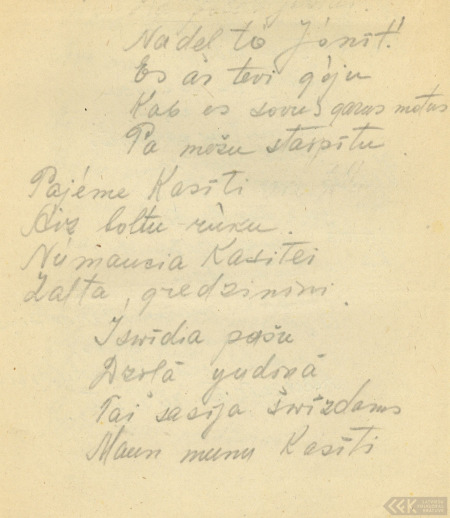 Nadel tō Jónit!
Es as tevi gòju
Kab es sovus garus motus
Pa mošu starpitu
Pajéme Kasīti
Aiz boltu rūku.
Nùmaucia Kasitei
Zalta, gredzinini.
Iswīdia pašu
Dzolā yudinā
Tai sacija šwizdams
Maun munu Kasīti